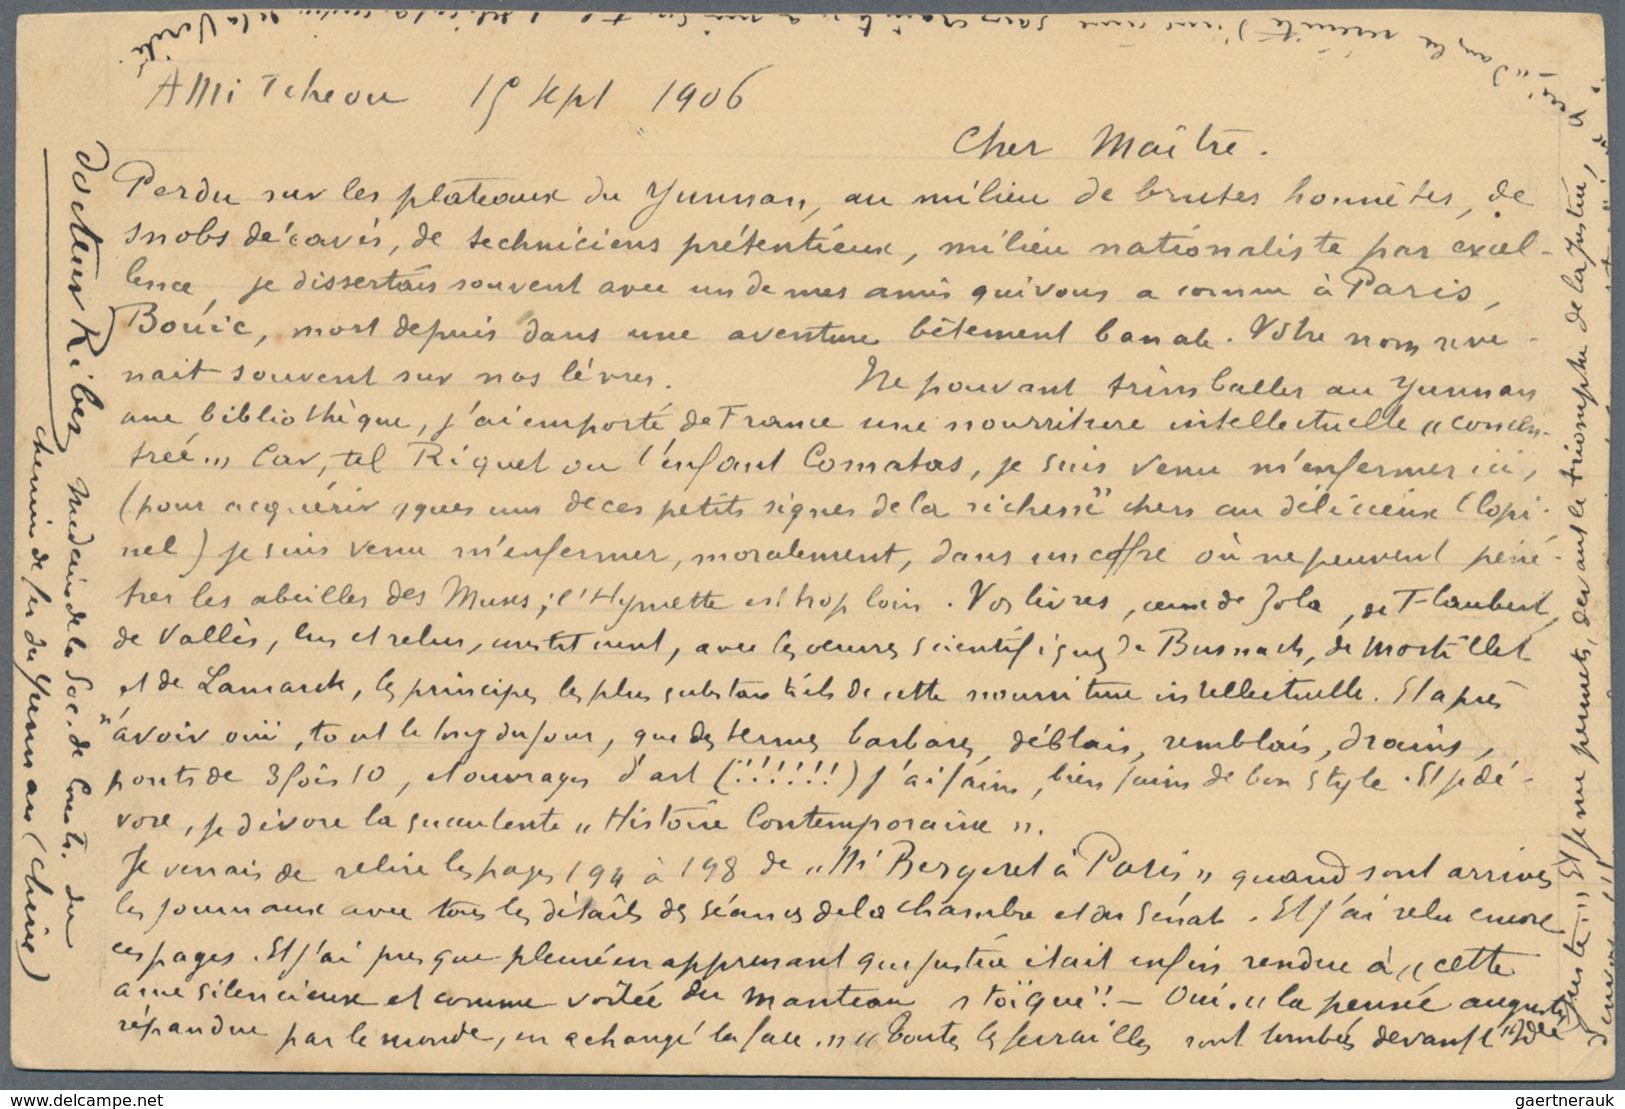 AMi Tcheou 15 sept 1906
Cher Maître.
Perdu sur les plateaux du Yunnan, au milieu de brutes honnêtes, de
snobs décavés, de techniciens prétentieux, milieu nationaliste par excel-
lence, je dissertais souvent avec un de mes amis qui vous a connu à Paris,
Bouic, mort depuis dans une aventure bêtement banale. Votre nom reve-
nait souvent sur nos lèvres. Ne pouvant trimballer au Yunnan
une bibliothèque, j'ai emporté de France une nourriture intellectuelle "concen-
trée." Car, tel Riquet ou l'enfant Comatas, je suis venu m'enfermer ici,
(pour acquérir qques uns de ces petits signes de la richesse" chers au délicieux Clopi-
nel) je suis venu m'enfermer, moralement, dans un coffre où ne peuvent péné-
trer les abeilles des Muses; l'Hymette est trop loin. Vos livres, ceux de Zola, de Flaubert,
de Vallès, lus et relus, constituent, avec les oeuvres scientifiques de de Mortillet
et de Lamarck, les principes les plus substantiels de cette nourriture intellectuelle. Et après
avoir ouï, tout le long du jour, que des termes barbares, déblais, remblais, drains,
ponts de 3 fois 10, et ouvrages d'art (!!!!!!!) j'ai faim, bien faim de bon style. Et je dé-
vore, je dévore la succulente "Histoire Contemporaine".
Je venais de relire les pages 194 à 198 de "Mr Bergeret à Paris" quand sont arrivés
les journaux avec tous les détails des séances de la chambre et du Sénat. Et j'ai relu encore
ces pages. Et j'ai presque pleuré en apprenant que justice était enfin rendue à "cette
âme silencieuse et comme voilée du manteau stoïque"! - Oui. "la pensée auguste
répandue par le monde, en a changé la face." "Toutes les ferrailles sont tombées devant l'Idée
juste." Et je me permets, devant le triomphe de la Justice,
"dans la sérénité d'une âme sans crainte
de la Vérité
Docteur Ribes
Médecin de la Soc. de Constr. du
chemin de fer du Yunnan (Chine)
gaertnerauk
gaertnerauk.com